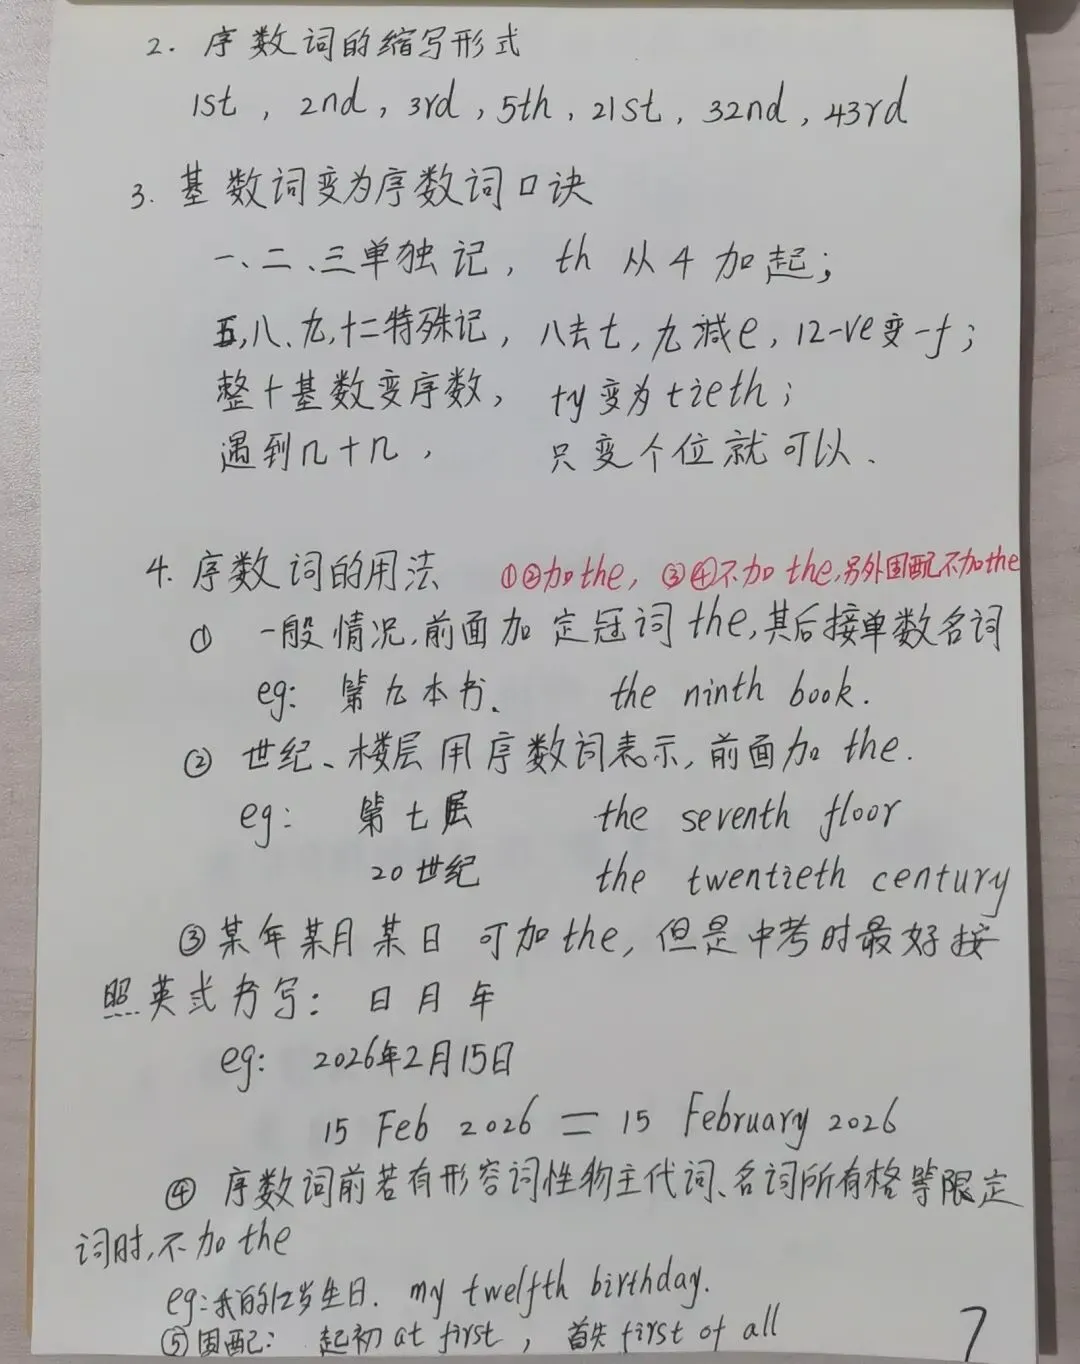 2. 序数词的缩写形式
1st, 2nd, 3rd, 5th, 21st, 32nd, 43rd
3. 基数词变为序数词口诀
一、二、三单独记, th 从4加起;
五,八、九,十二特殊记, 八去t,九减e,12-ve变-f;
整十基数变序数, ty变为tieth;
遇到几十几, 只变个位就可以、
4. 序数词的用法 ①②加the, ③④不加the,另外固配不加the
① 一般情况,前面加定冠词the,其后接单数名词
eg: 第九本书、 the ninth book.
② 世纪、楼层用序数词表示,前面加the.
eg: 第七层 the seventh floor
20世纪 the twentieth century
③某年某月某日可加the,但是中考时最好按
照英式书写: 日月年
eg: 2026年2月15日
15 Feb 2026 = 15 February 2026
④ 序数词前若有形容词性物主代词、名词所有格等限定
词时,不加the
eg:我的12岁生日. my twelfth birthday.
⑤固配: 起初 at first, 首先 first of all
7